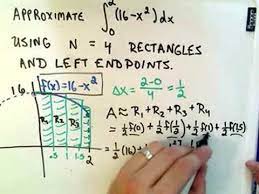 APPROXIMATE ∫₀² (16-x²) dx
USING N = 4 RECTANGLES
AND LEFT ENDPOINTS.
16
f(x)=16-x²
R₁ R₂ R₃
.5 1 1.5 2
Δx = 2-0/4 = 1/2
A ≈ R₁ + R₂ + R₃ + R₄
= 1/2 f(0) + 1/2 f(1/2) + 1/2 f(1) + 1/2 f(1.5)
= 1/2 (16) +